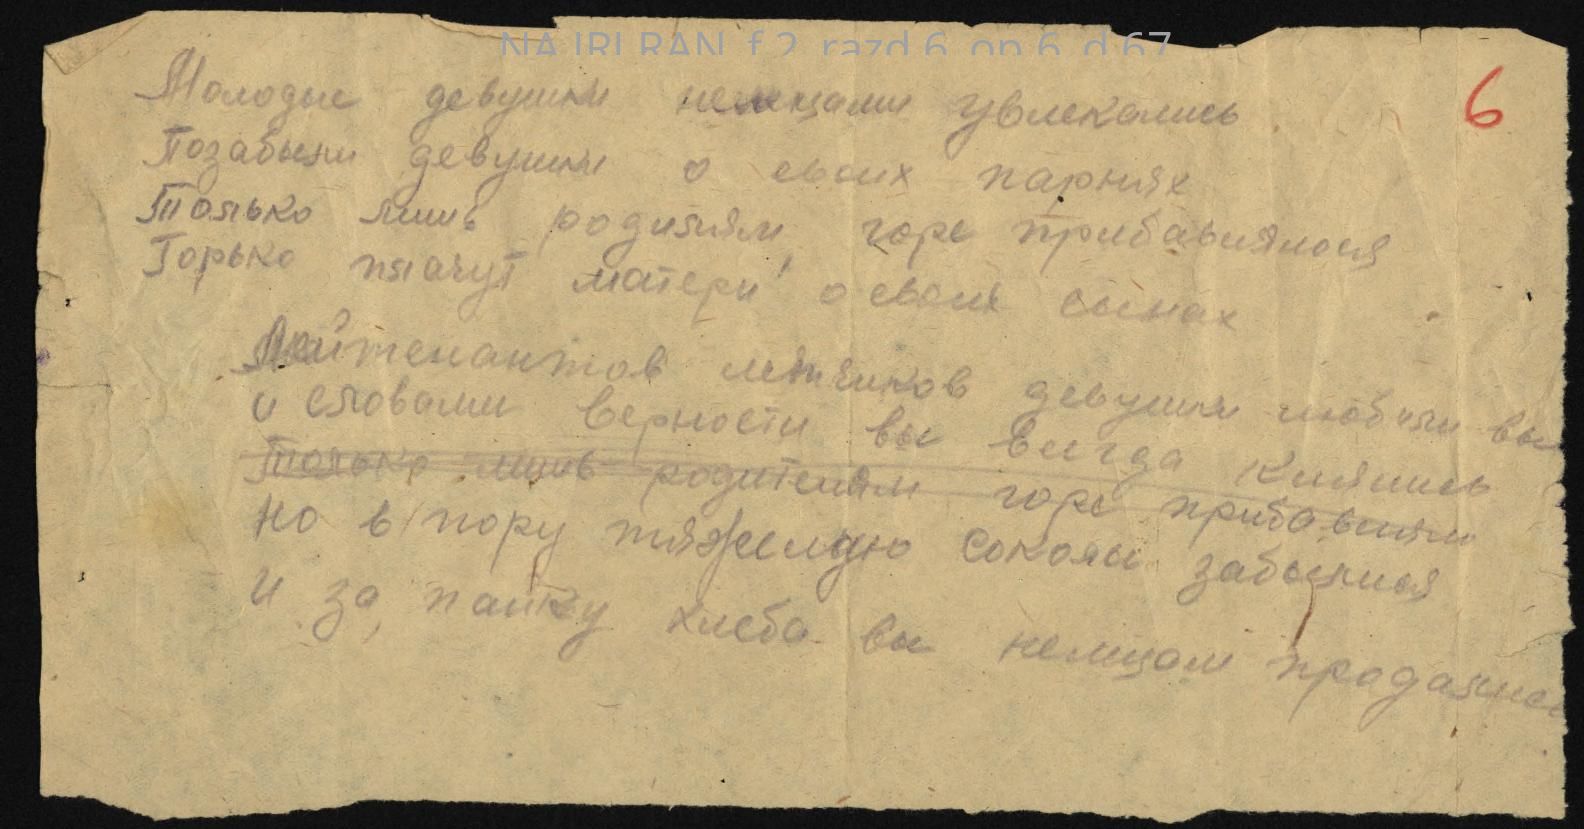 NA IRI RAN f.2 razd.6 op.6 d.67
6
Молодые девушки немцами увлекались
Позабыли девушки о своих парнях
Только лишь родилям, горе прибавлялося
Горько плачут матери о своих сынах
Лейтенантов летчиков девушки любили вы
и словами верности вы всегда клялись
Только лишь родителям горе прибавляло
Но в пору тяжелую соколы забылися
и за пайку хлеба вы немцам продались